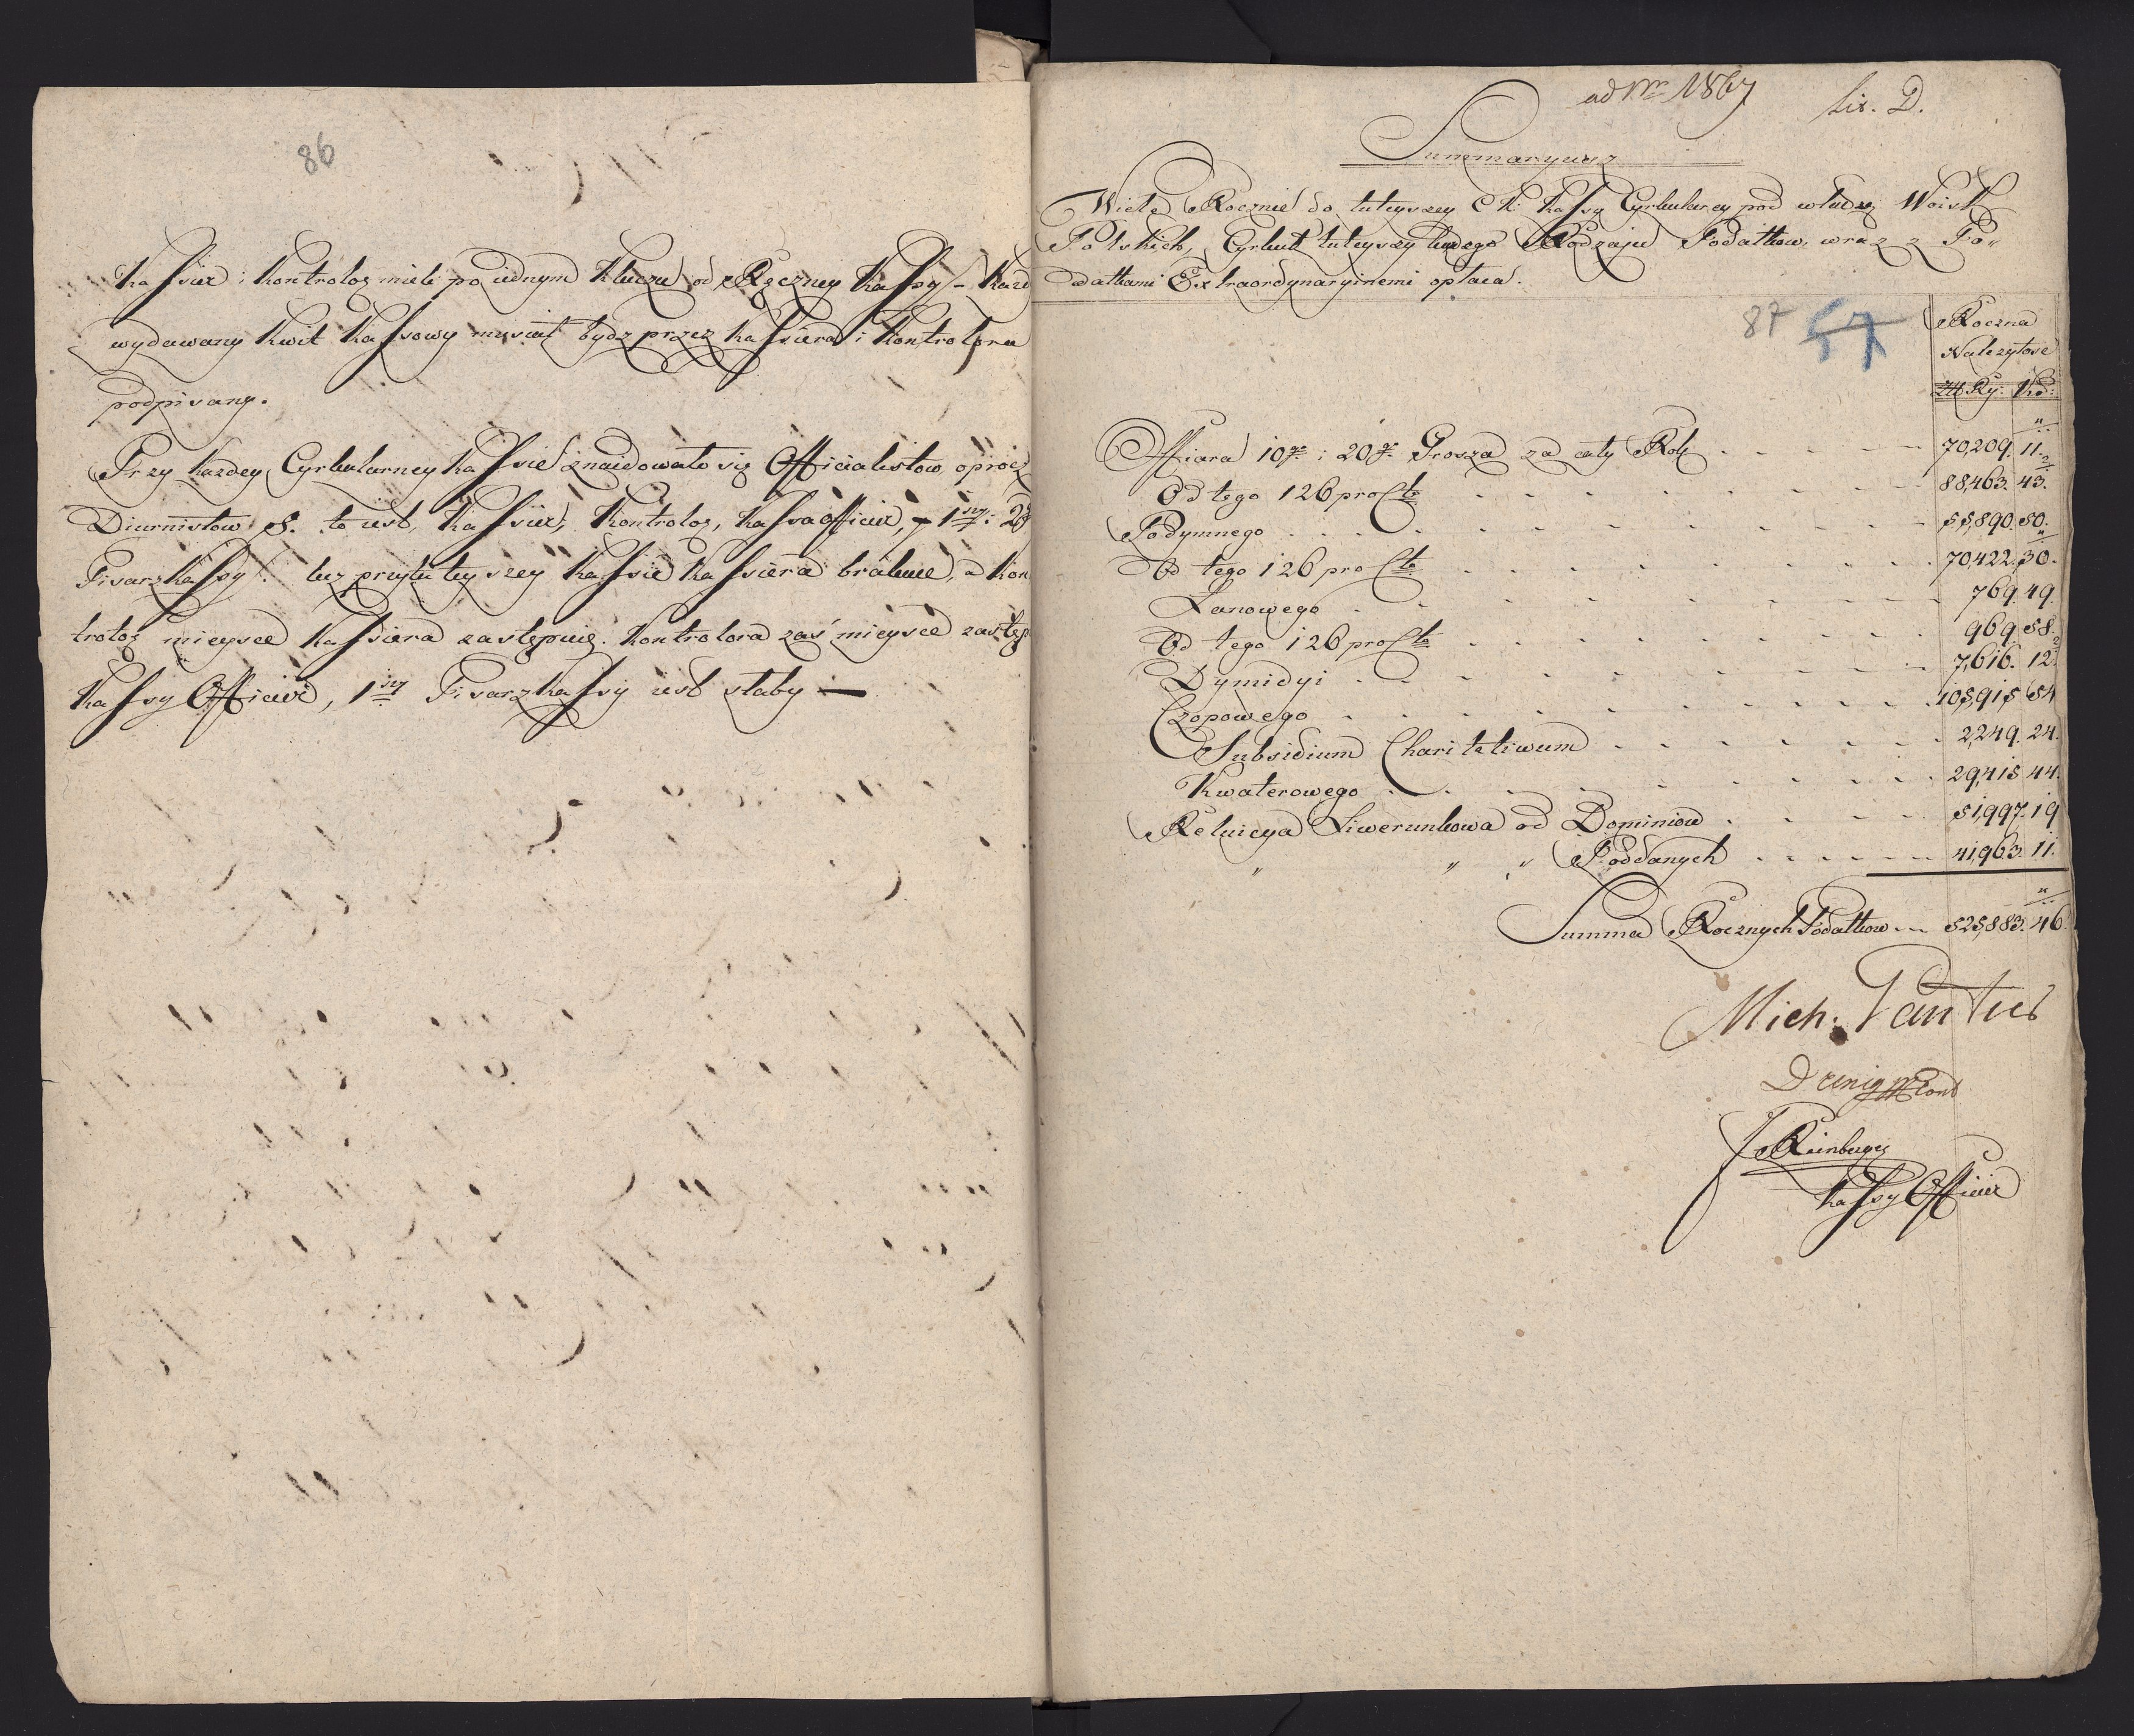 86
Kassier i Kontrolor mieli po iednym Kluczu od Ręczney Kassy - Każd
wydawany Kwit Kassowy musiał bydz przez Kassiera i Kontrolora
podpisany.
Przy każdey Cyrkularney Kassie znaidowało się Officialistow oprocz
Diurnistow 5. to iest, Kassier, Kontrolor, Kassa Officier, 1szy i 2gi
Pisarz Kassy /. tuż przy tuteyszey Kassie Kassiera brakuie, a Kon
trolor mieysce Kassiera zastępuie. Kontrolora zaś mieysce zastęp
Kassy Officier, 1szy Pisarz Kassy iest słaby —
ad Nrm 1867 Lit. D.
Summaryusz
Wiele Rocznie do tuteyszey C. K. Kassy Cyrkularney pod władzą Woisk
Polskich, Cyrkuł tuteyszy każdego Rodzaju Podatkow, wraz z Po„
datkami Extraordynaryinemi opłaca.
87 57
Roczna
Należytość
Ry: Kr:
Offiara 10go i 20go Grosza za cały Rok 70,209. 11.
Od tego 126 pro Cto 88,463. 43.
Podymnego 55,890. 50.
Od tego 126 pro Cto 70,422. 30.
Łanowego 769. 49.
Od tego 126 pro Cto 969. 58.
Dymidyi 7,616. 12.
Czopowego 105,915 54
Subsidium Charitativum 2,249. 24.
Kwaterowego 29,415 44.
Reluicya Liwerunkowa od Dominiow 51,997. 19
„ „ „ Poddanych 41,963. 11.
Summa Rocznych Podatkow 525,883. 46.
Mich:
J Reinberger
Kassy Officier